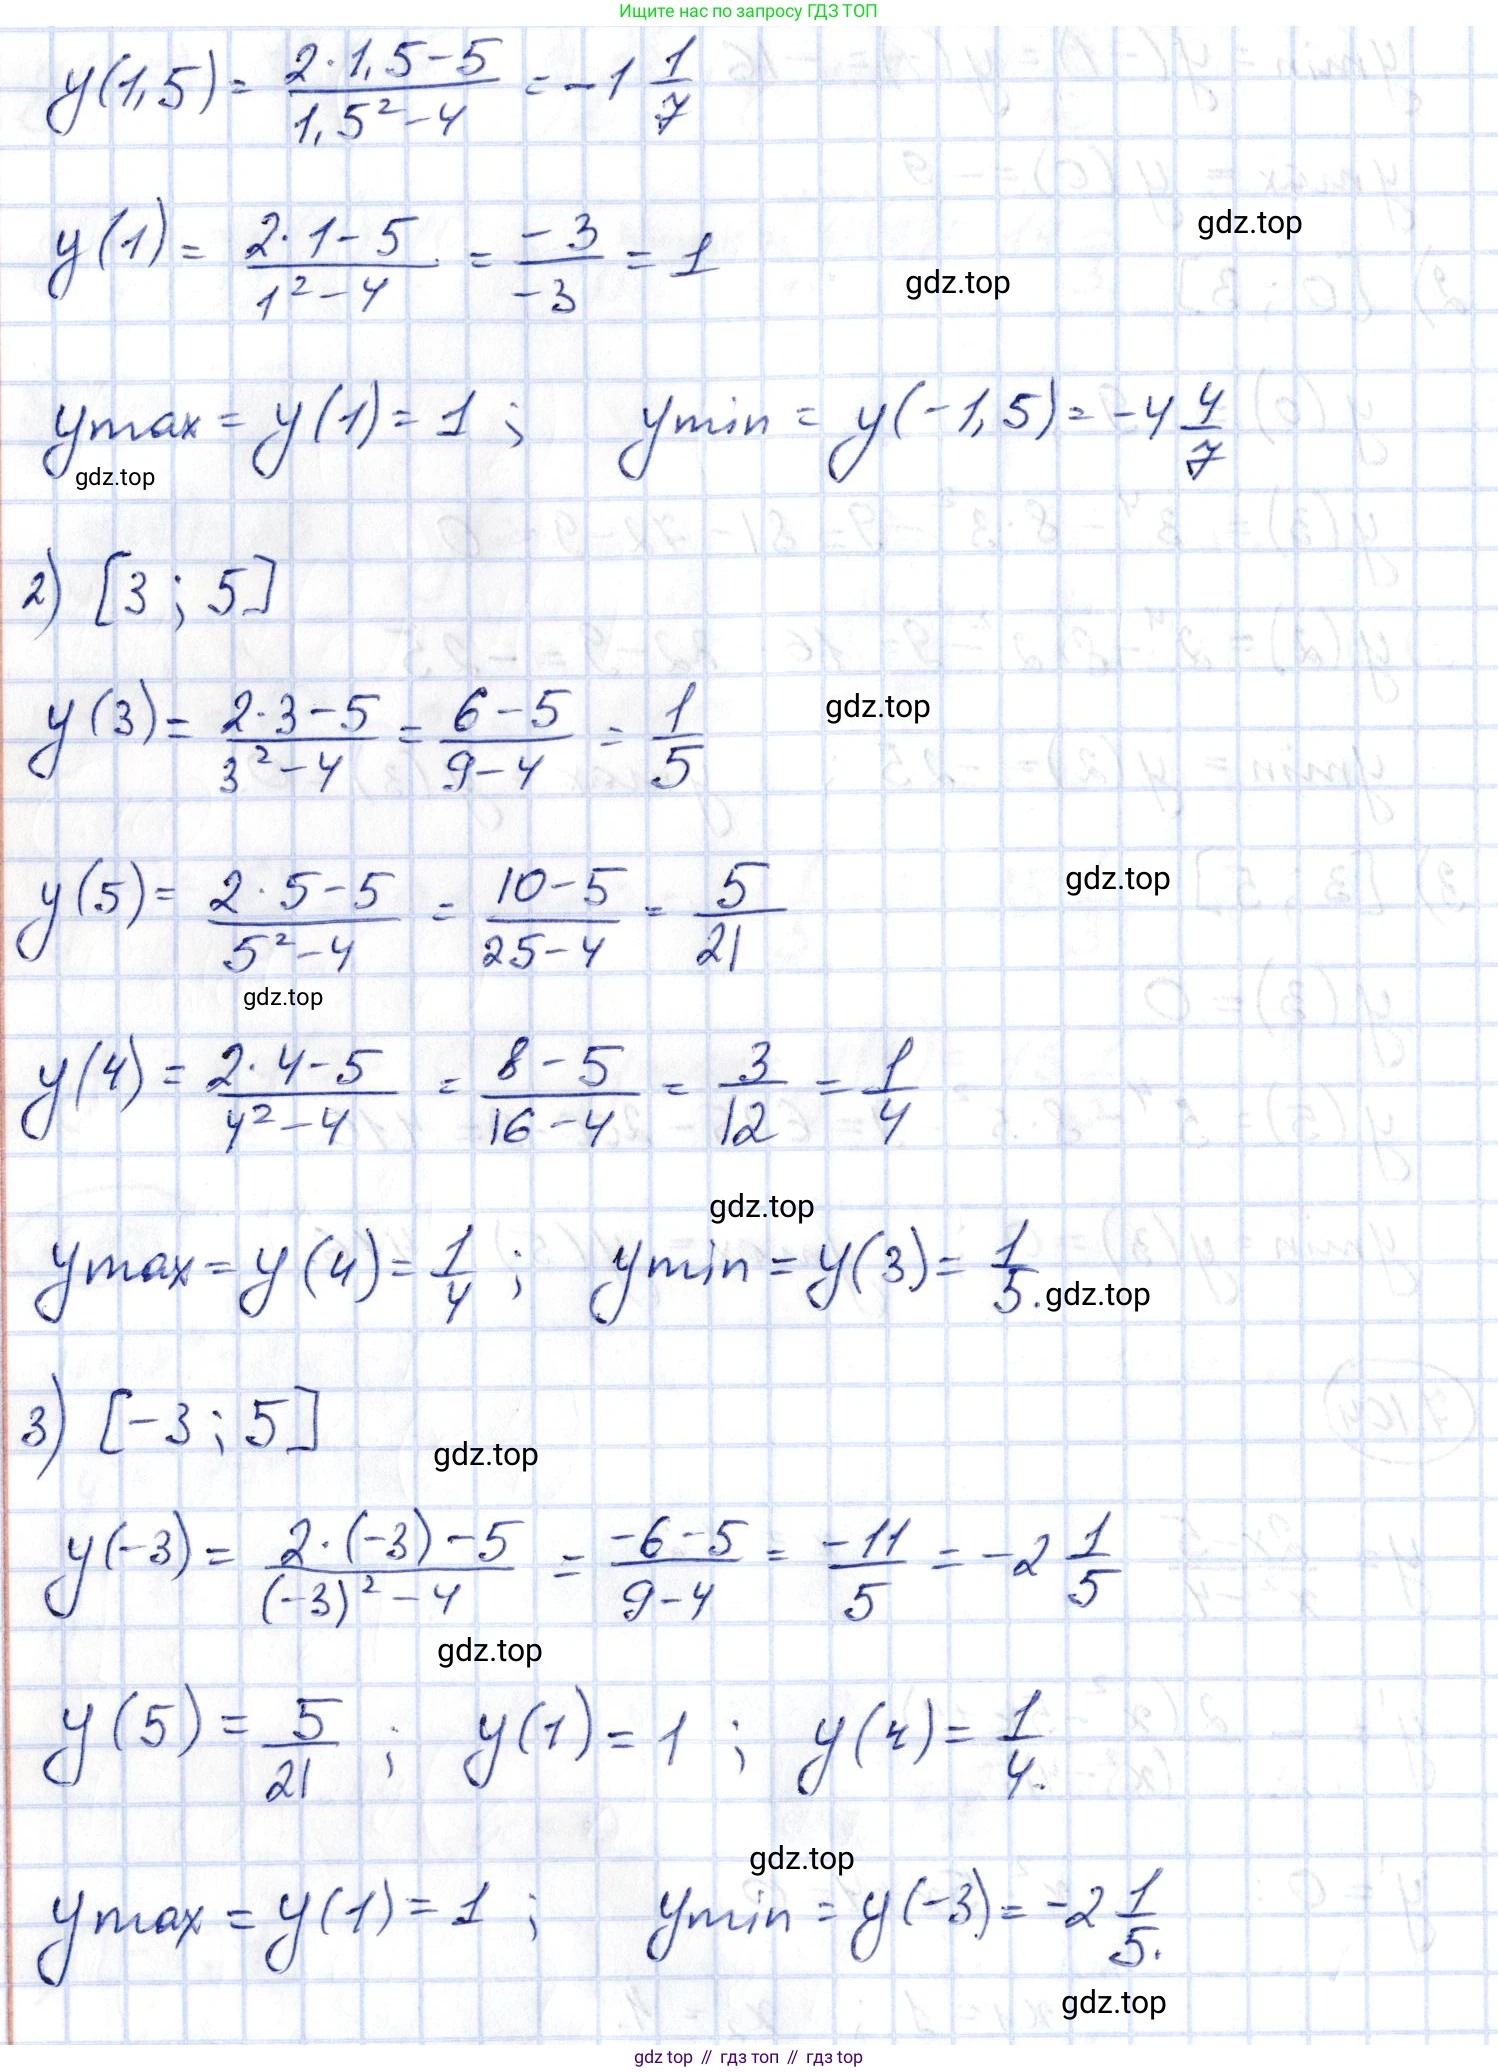 Ищите нас по запросу ГДЗ ТОП
y(1,5) = (2·1,5-5)/(1,5²-4) = -1 1/7
y(1) = (2·1-5)/(1²-4) = -3/-3 = 1
gdz.top
gdz.top
ymax = y(1) = 1 ; ymin = y(-1,5) = -4 4/7
gdz.top
2) [3 ; 5]
y(3) = (2·3-5)/(3²-4) = (6-5)/(9-4) = 1/5
gdz.top
y(5) = (2·5-5)/(5²-4) = (10-5)/(25-4) = 5/21
gdz.top
gdz.top
y(4) = (2·4-5)/(4²-4) = (8-5)/(16-4) = 3/12 = 1/4
gdz.top
ymax = y(4) = 1/4 ; ymin = y(3) = 1/5.
gdz.top
3) [-3 ; 5]
gdz.top
y(-3) = (2·(-3)-5)/((-3)²-4) = (-6-5)/(9-4) = -11/5 = -2 1/5
gdz.top
y(5) = 5/21 ; y(1) = 1 ; y(4) = 1/4.
gdz.top
ymax = y(1) = 1 ; ymin = y(-3) = -2 1/5.
gdz.top
gdz top // гдз топ // гдз top